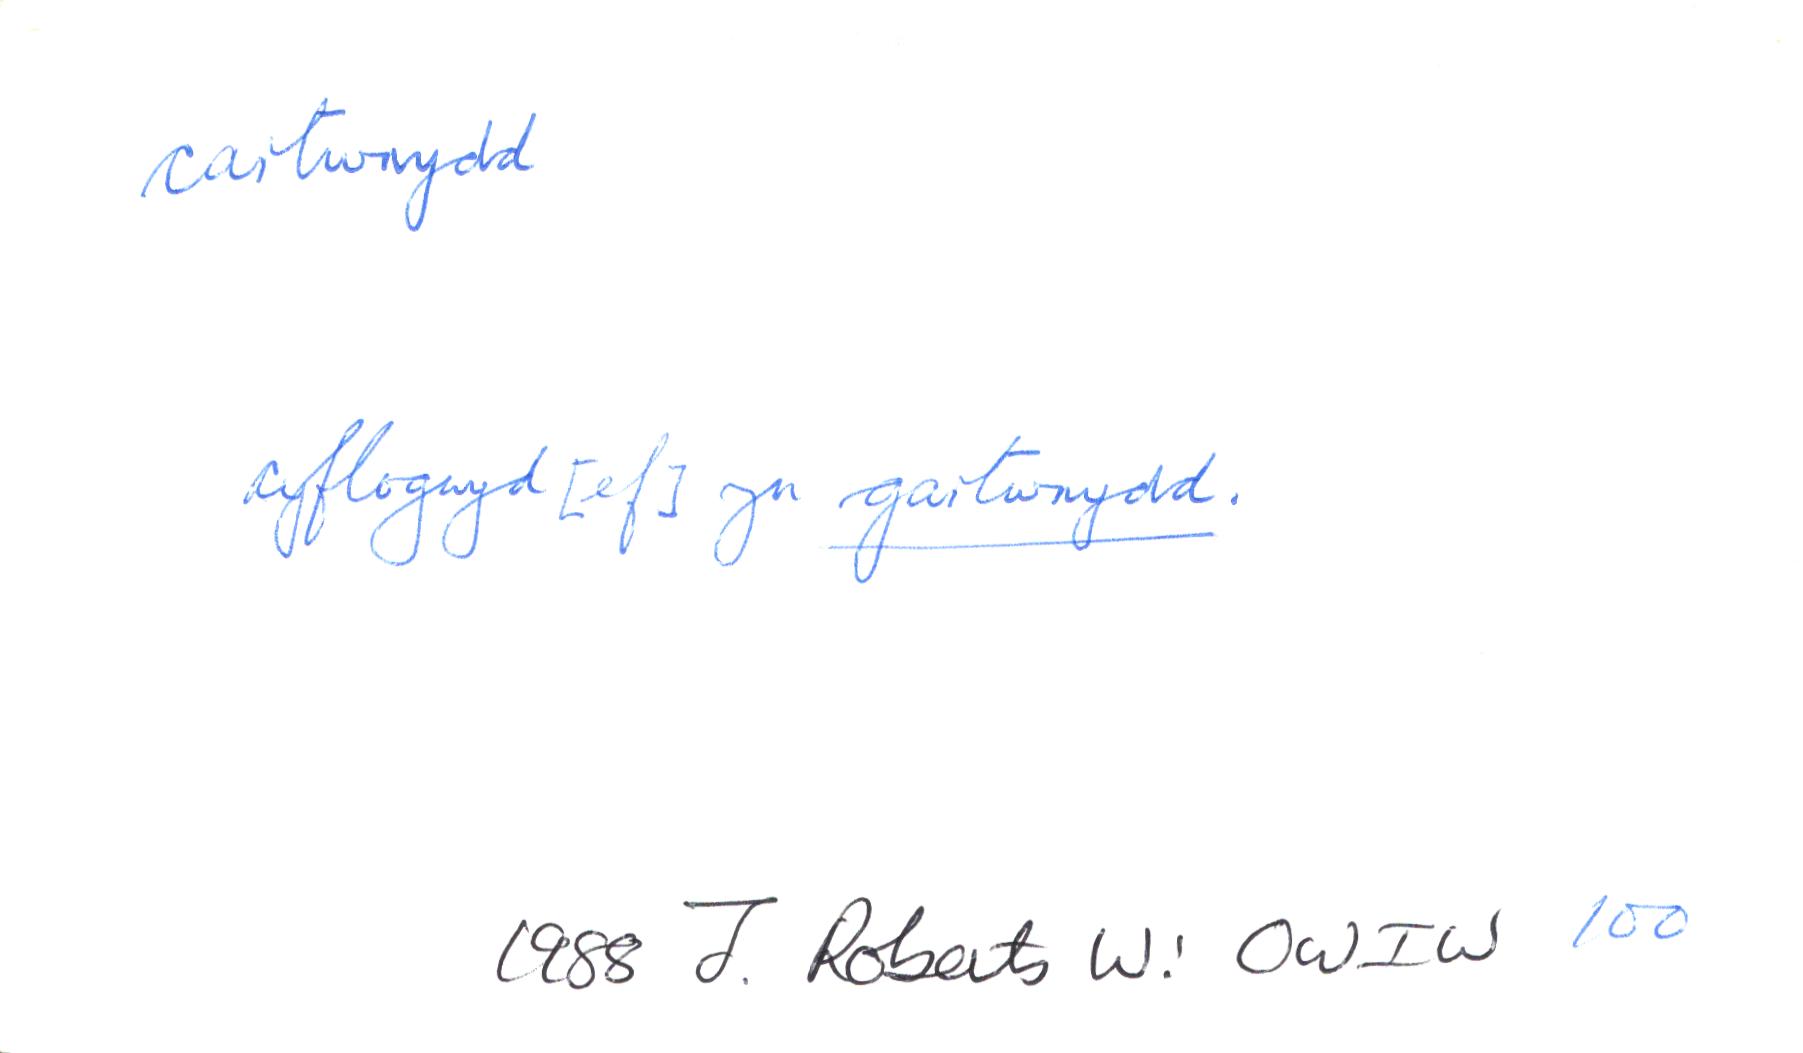 cartwnydd
cyflogwyd [ef] yn gartwnydd.
1988 J. Roberts W: OWIW 100